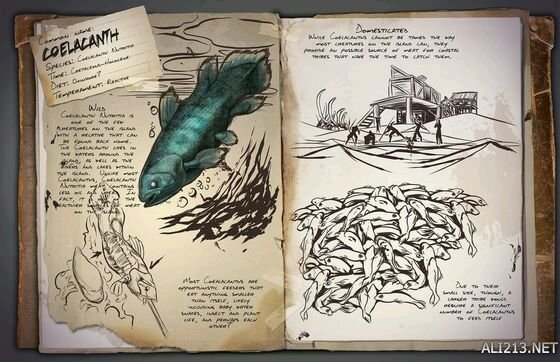 Common Name:
COELACANTH
Species: Coelacanth Nutritia
Time: Cretaceous-Holocene
Diet: Omnivore?
Temperament: Reactive
Wild
Coelacanth Nutritia is
one of the few
creatures on the island
with a relative that can
be found back home.
The Coelacanth lives in
the waters around the
island, as well as the
rivers and lakes within
the island. Unlike most
Coelacanths, Coelacanth
Nutritia meat contains
less oil and In
fact, it is the
healthier sources of meat
on the island.
Most Coelacanths are
opportunistic feeders that
eat anything smaller
than itself, likely
including baby water
snakes, insect and plant
life, and perhaps each
other?
Domesticated
While Coelacanth cannot be tamed the way
most creatures on the island can, they
provide an possible source of meat for coastal
tribes that have the time to catch them.
Due to their
small size, though, a
larger tribe would
require a significant
number of Coelacanths
to feed itself
ALI213.NET